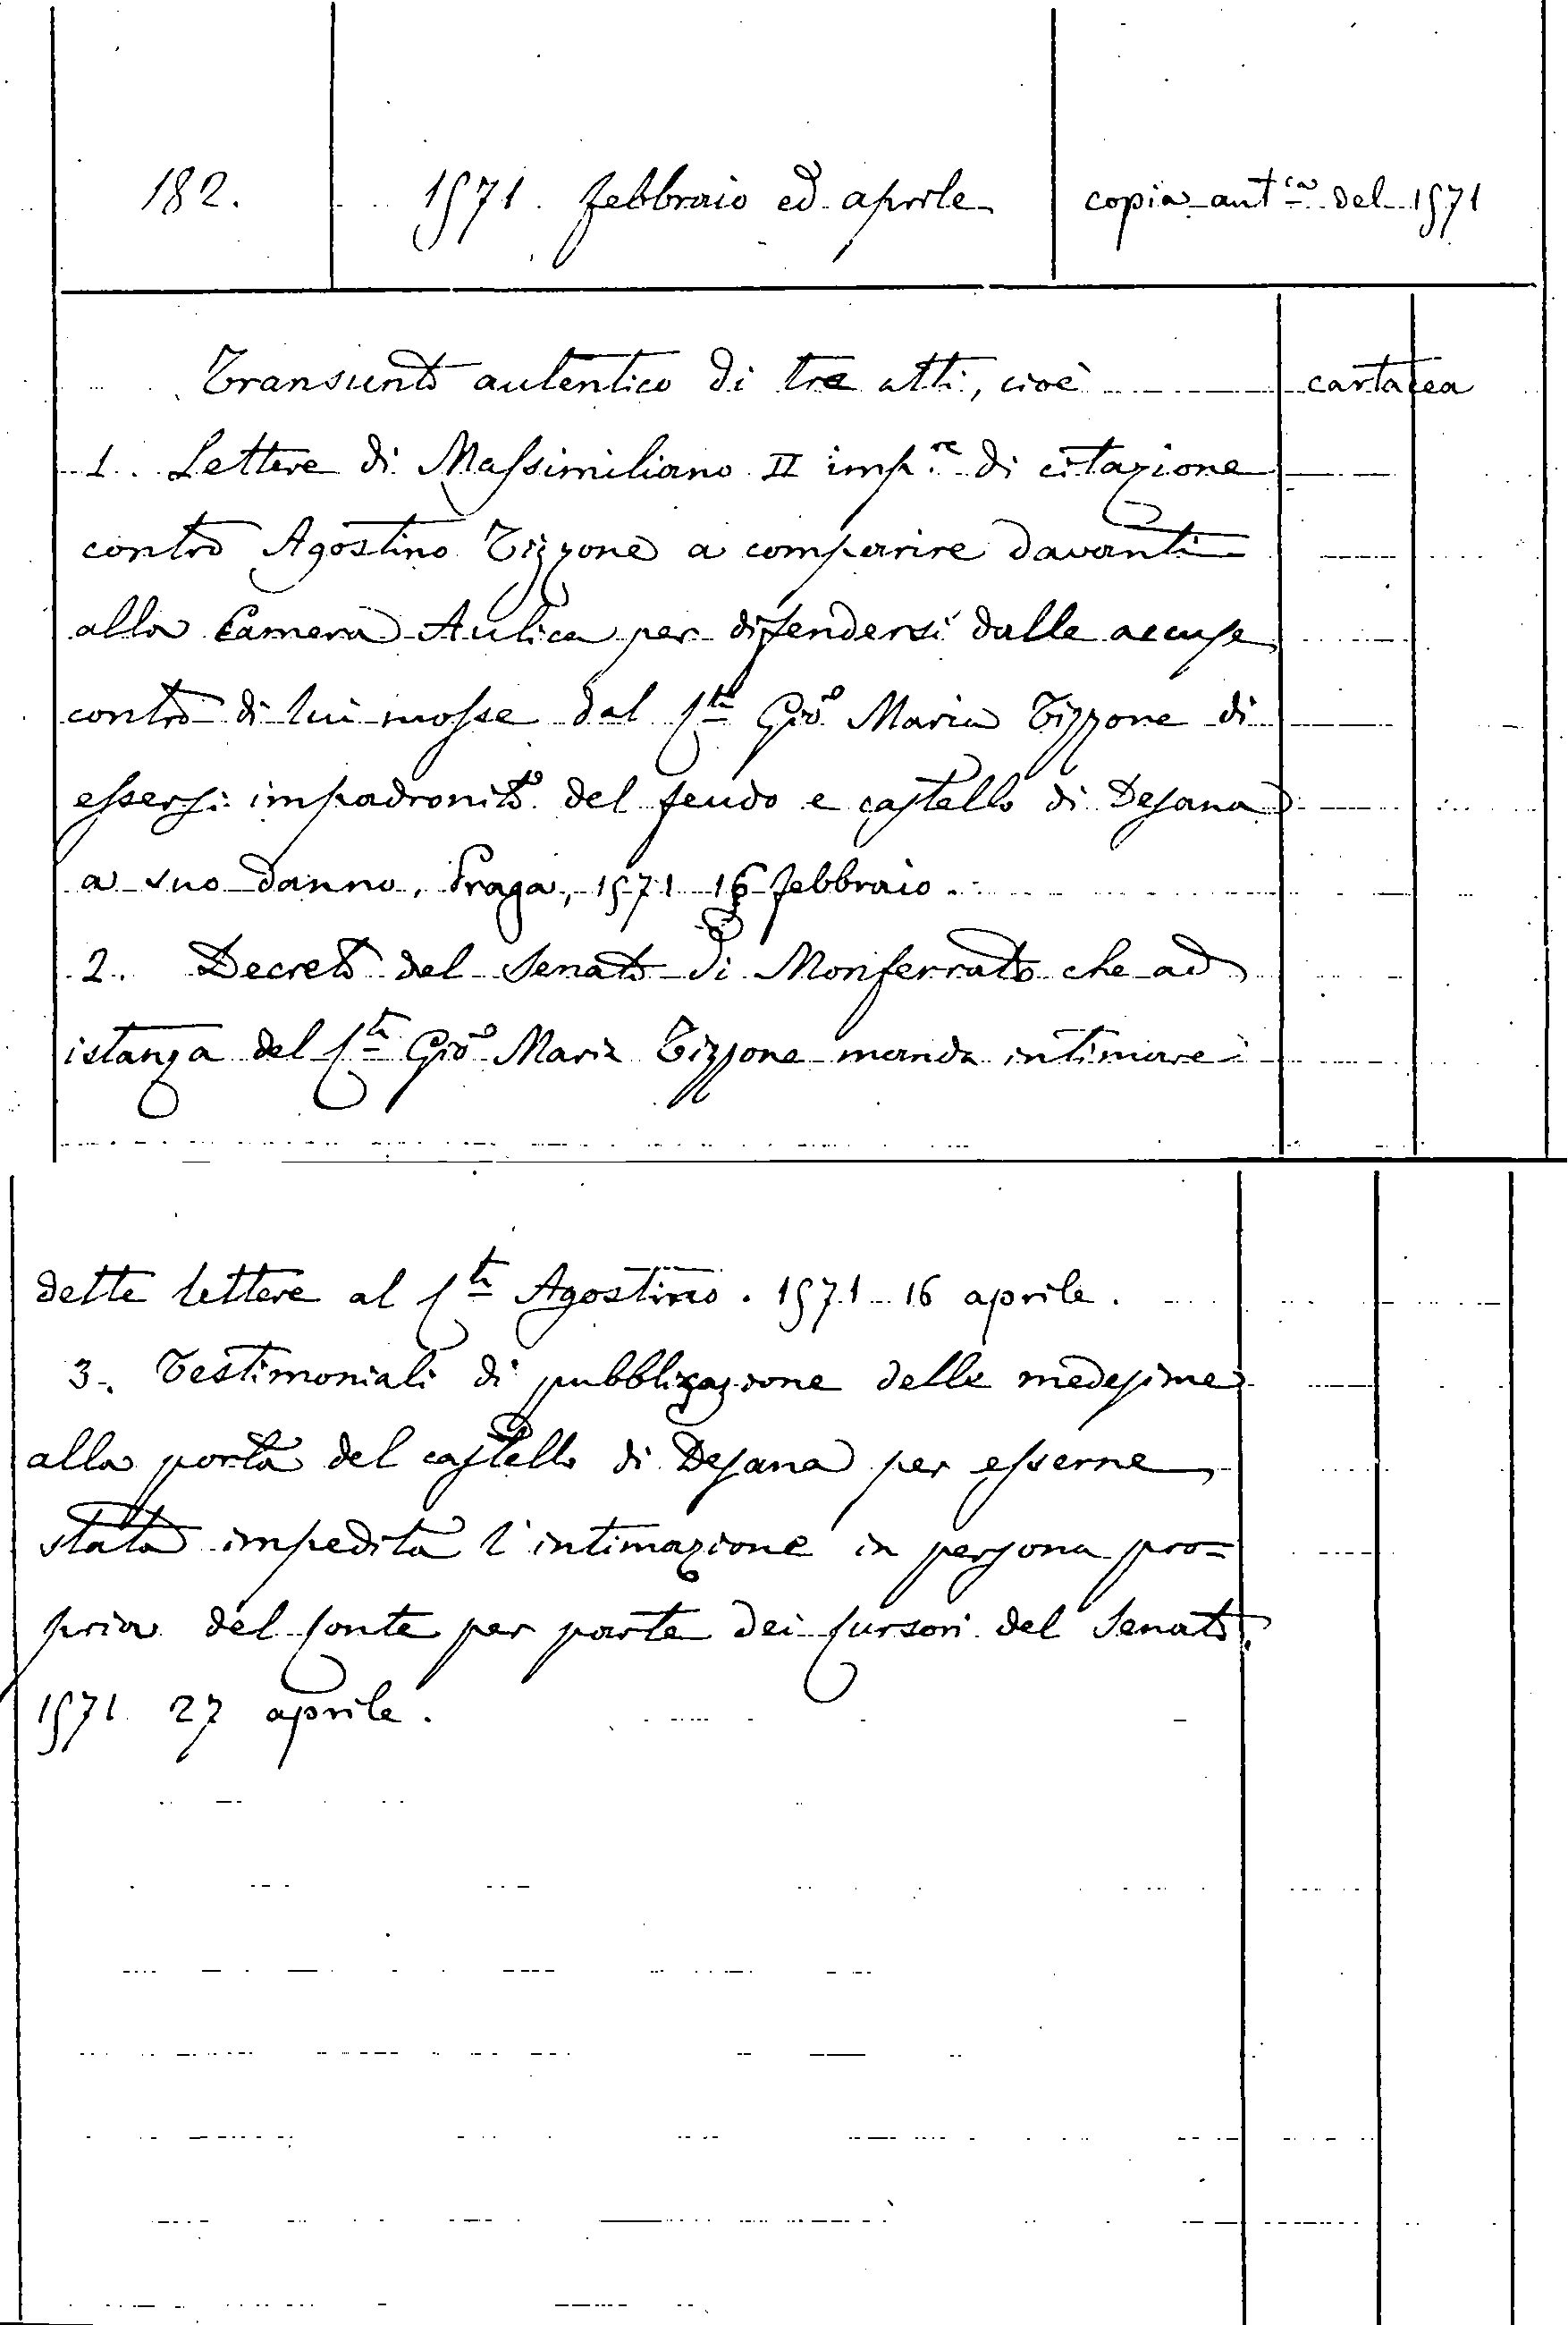 182. 1571. febbraio ed aprile copia ant.ca del 1571
Transunto autentico di tre atti, cioè cartacea
1. Lettere di Massimiliano II imp.re di citazione
contro Agostino Tizzone a comparire davanti
alla Camera Aulica per difendersi dalle accuse
contro di lui mosse dal Cte Gio Maria Tizzone di
essersi impadronito del feudo e castello di Desana
a suo danno, Praga, 1571 16 febbraio.
2. Decreto del Senato di Monferrato che ad
istanza del Cte Gio Maria Tizzone manda intimare
dette lettere al Cte Agostino. 1571 16 aprile.
3. Testimoniali di pubblicazione delle medesime
alla porta del castello di Desana per esserne
stata impedita l'intimazione in persona pro=
pria del Conte per parte dei Cursori del Senato.
1571 27 aprile.